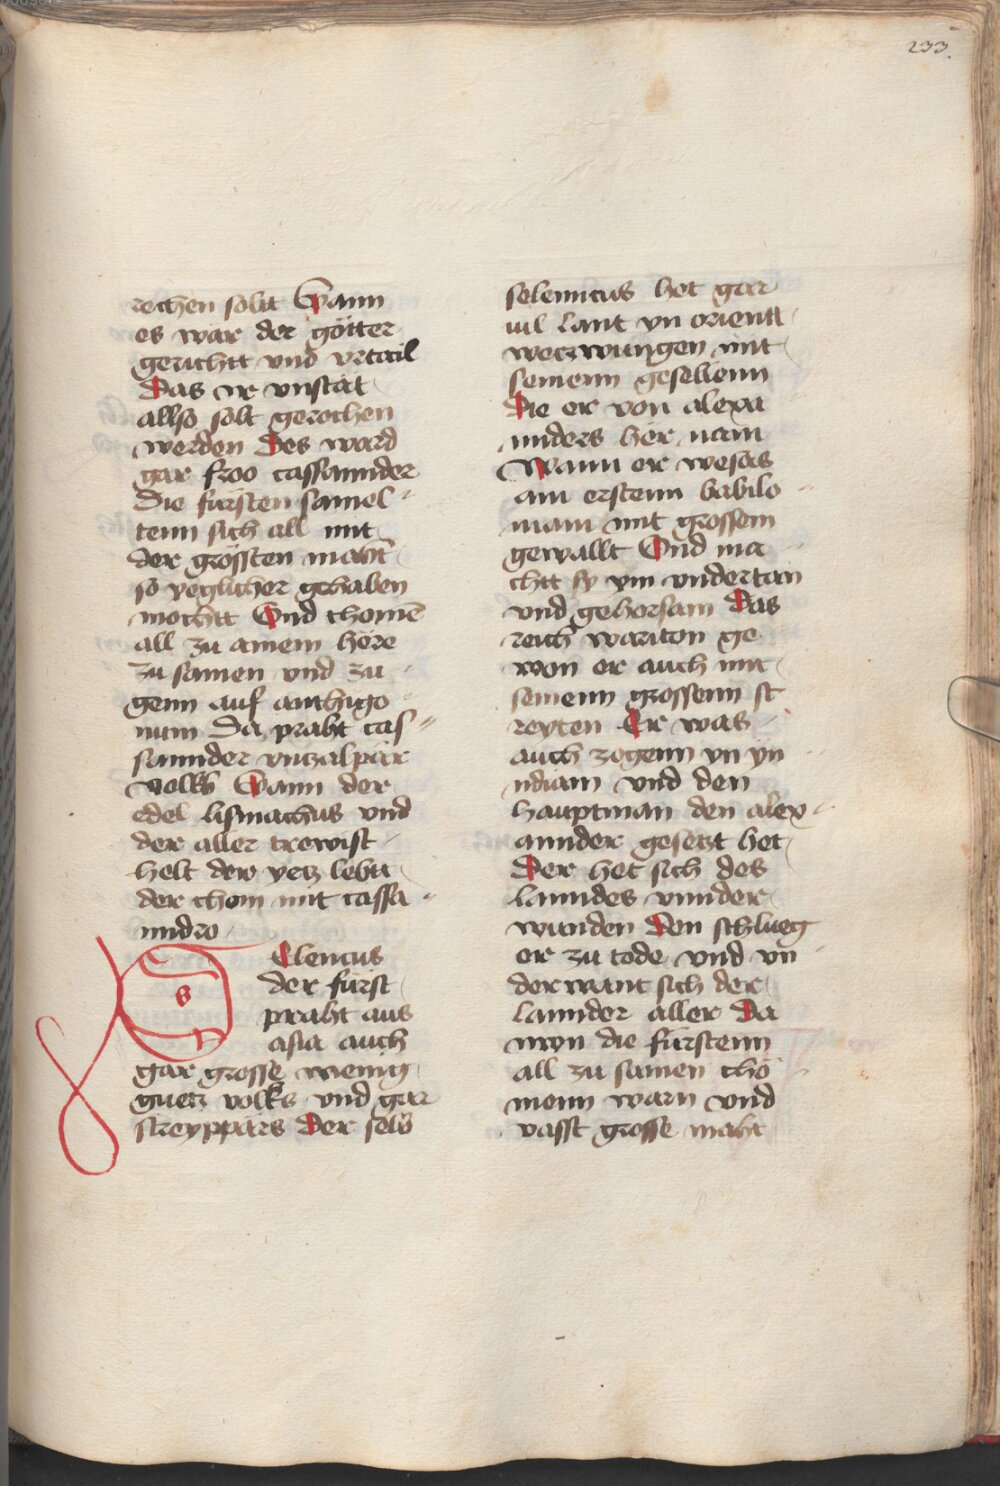 233.
rechen solt Wann
es war der götter
gerichtt vnd vrtail
Das ir vnstät
allso solt gerochen
werden Des ward
gar froo cassannder
Die fürsten samel
tenn sich all mit
der grössten macht
so yeglicher gehaben
mochtt Vnd chomē
all zu ainem höre
zu samen vnd zu
genn auf anthigo
num Da praht cas
sannder vnzalpär
volkh Wann der
edel lismachus vnd
der aller trewist
helt der yetz lebtt
der chom mit cassa
nndro
s Elenus
der fürst
praht aus
asia auch
gar grosse wenig
guetz volks vnd gar
streyppars Der selb
selennus het gar
vil lant yn orientt
weczwungen mit
seinenn gesellenn
Die er von alexa
nnders her nam
Wann er wesas
am erstenn babilo
niam mit grossem
gewallt Vnd ma
chtt sy ym vndertan
vnd gehorsam Das
reich wariton ge
won er auch mit
seinenn grossenn st
reyten Er was
auch zogenn yn yn
ndiam vnd den
hauptman den alex
annder gesetzt het
Der het sich des
lanndes vnnder
wunden Den schlueg
er zu tode vnd vn
derwant sich der
lannder aller Da
nwn die fürstenn
all zu samen cho
menn warn vnd
vasst grosse macht